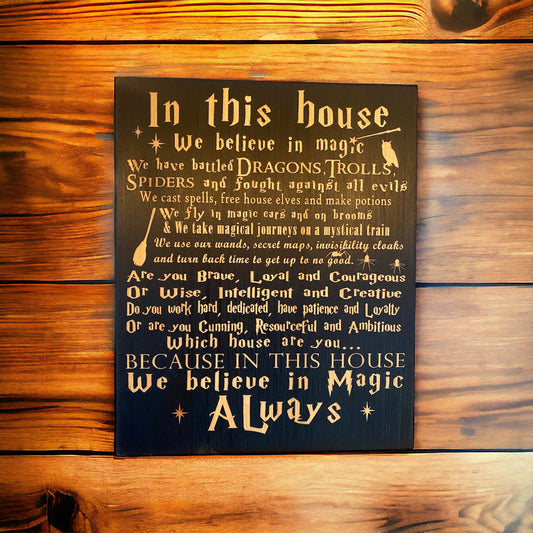 In this house
We believe in magic
We have battled DRAGONS, TROLLS,
SPIDERS and fought against all evils
We cast spells, free house elves and make potions
We fly in magic cars and on brooms
& We take magical journeys on a mystical train
We use our wands, secret maps, invisibility cloaks
and turn back time to get up to no good.
Are you Brave, Loyal and Courageous
Or Wise, Intelligent and Creative
Do you work hard, dedicated, have patience and Loyalty
Or are you Cunning, Resourceful and Ambitious
Which house are you...
BECAUSE IN THIS HOUSE
We believe in Magic
ALways